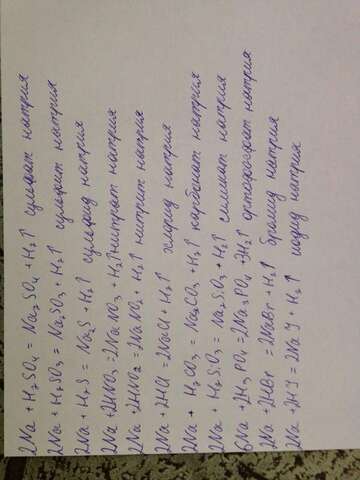 2Na + H₂SO₄ = Na₂SO₄ + H₂↑ сульфат натрия
2Na + H₂SO₃ = Na₂SO₃ + H₂↑ сульфит натрия
2Na + H₂S = Na₂S + H₂↑ сульфид натрия
2Na + 2HNO₃ = 2NaNO₃ + H₂↑ нитрат натрия
2Na + 2HNO₂ = 2NaNO₂ + H₂↑ нитрит натрия
2Na + 2HCl = 2NaCl + H₂↑ хлорид натрия
2Na + H₂CO₃ = Na₂CO₃ + H₂↑ карбонат натрия
2Na + H₂SiO₃ = Na₂SiO₃ + H₂↑ силикат натрия
6Na + 2H₃PO₄ = 2Na₃PO₄ + 3H₂↑ ортофосфат натрия
2Na + 2HBr = 2NaBr + H₂↑ бромид натрия
2Na + 2HI = 2NaI + H₂↑ иодид натрия